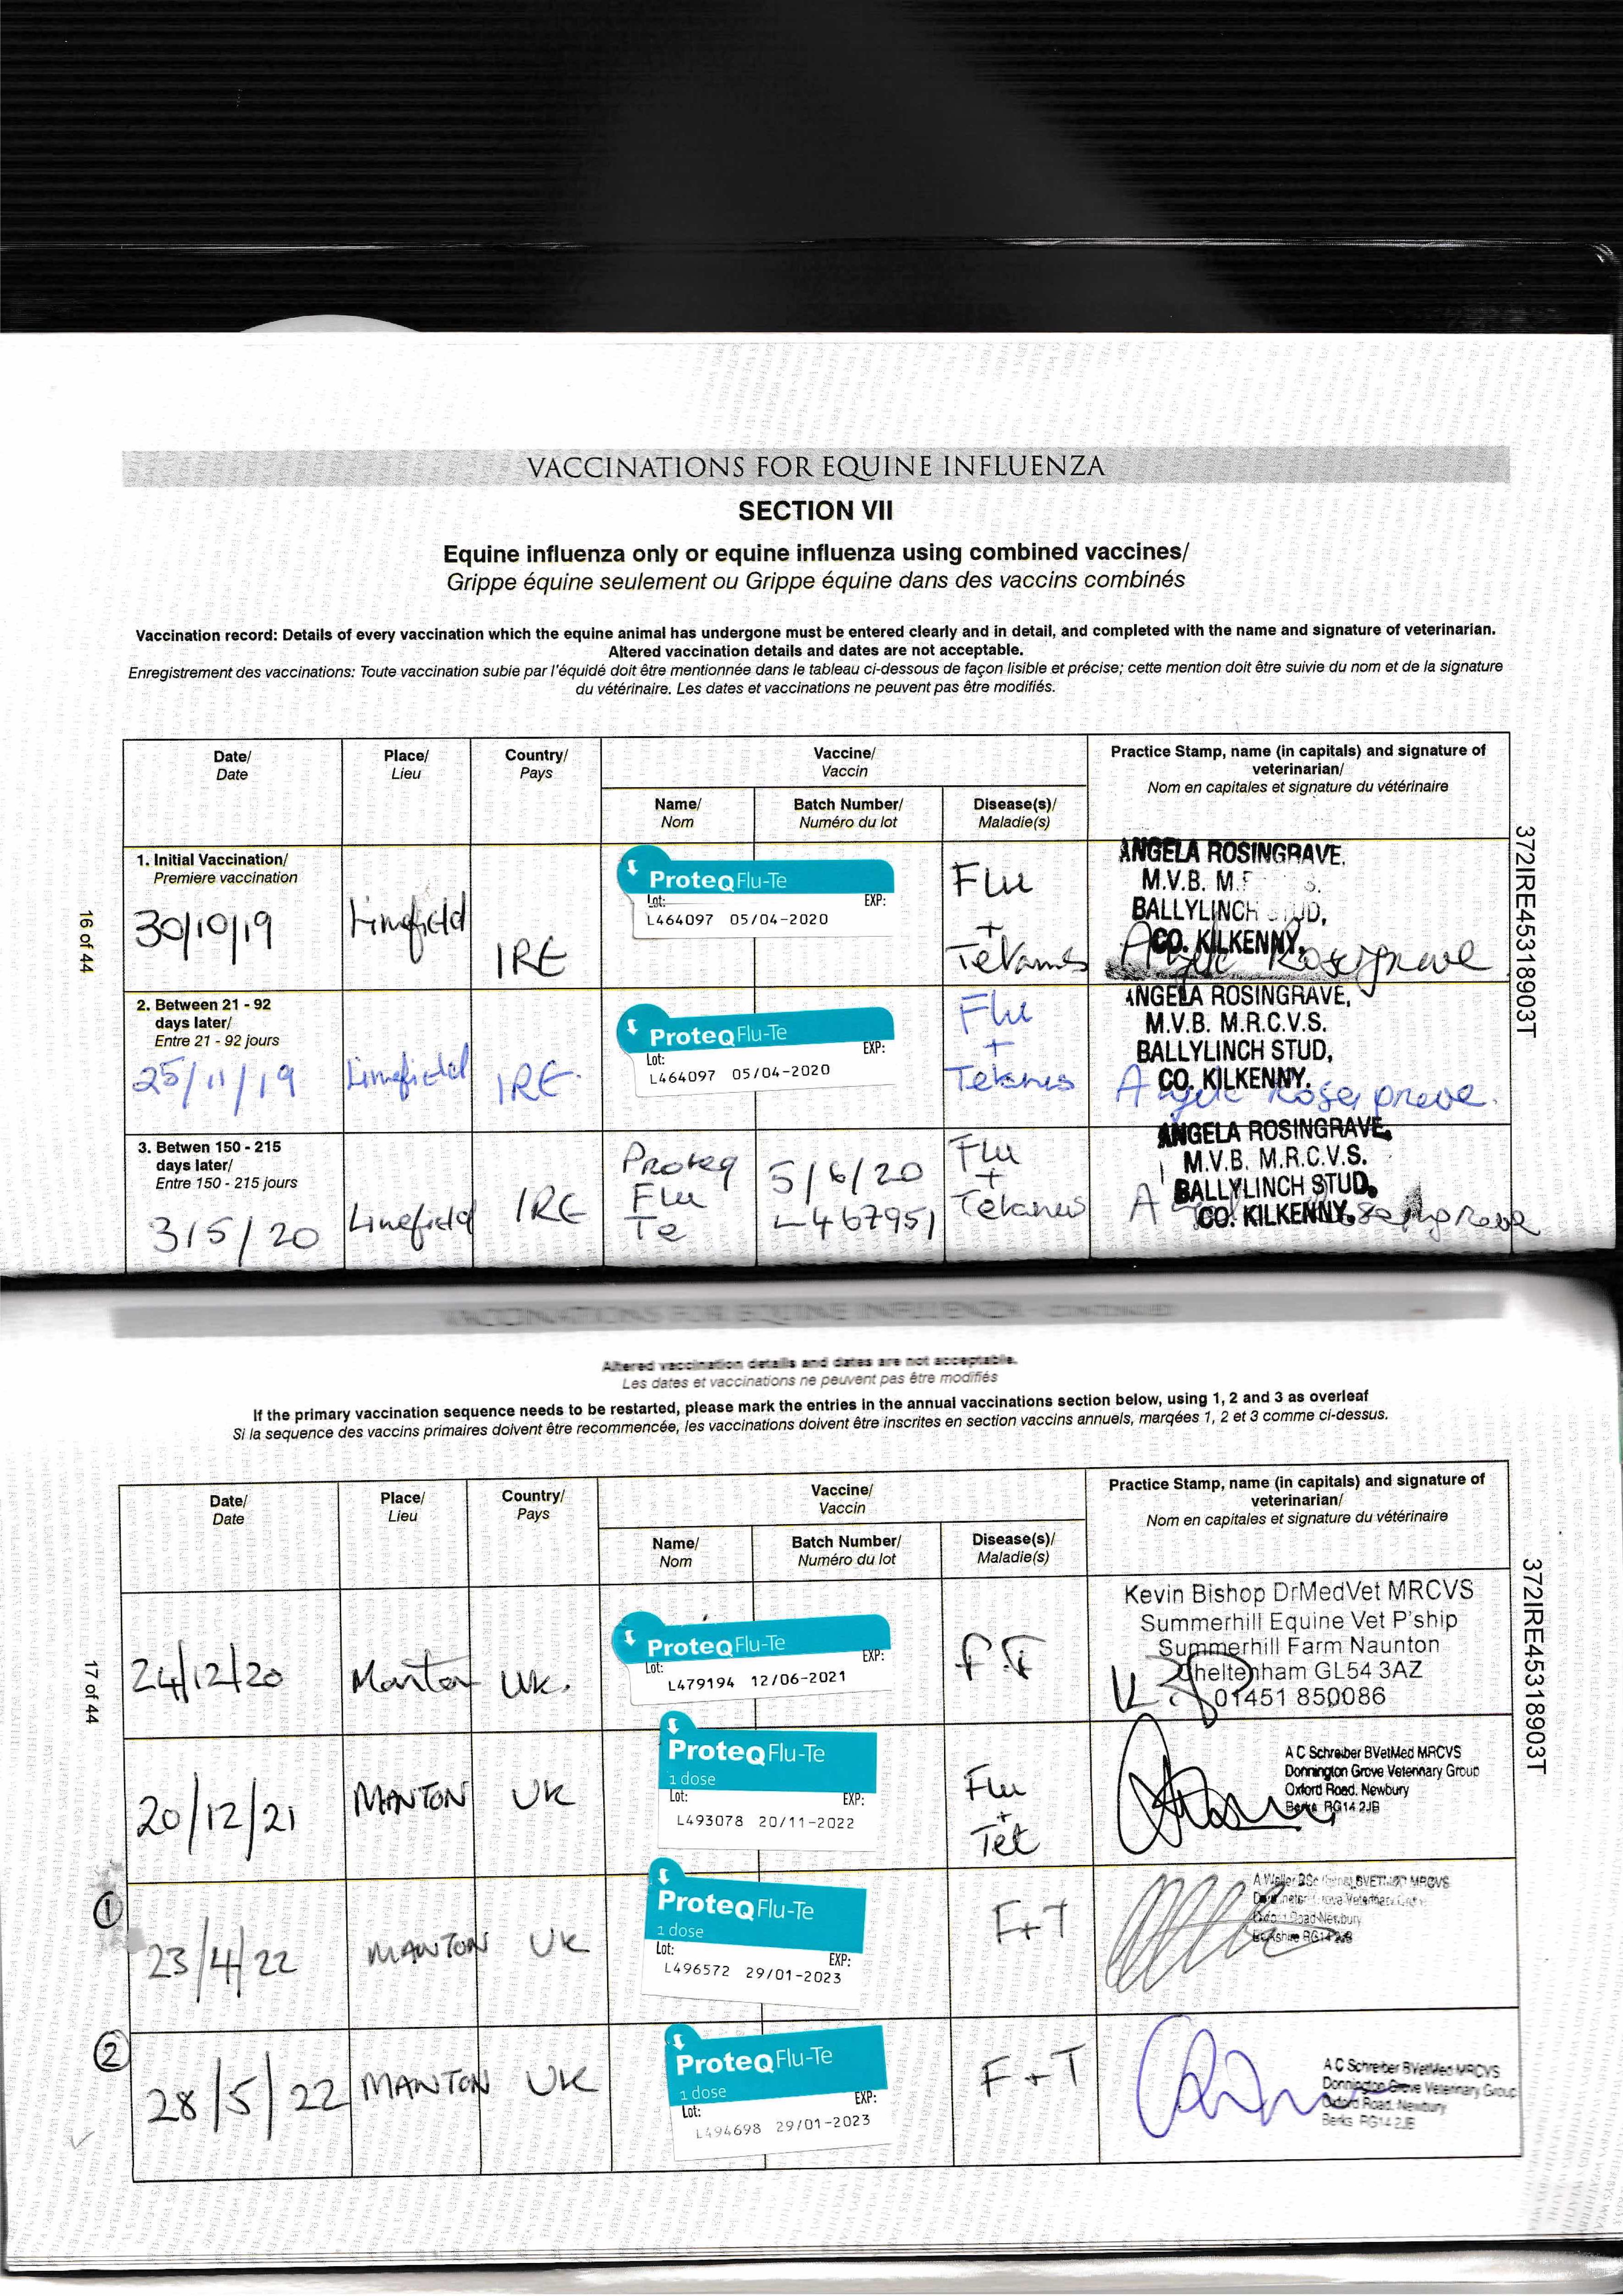 VACCINATIONS FOR EQUINE INFLUENZA
SECTION VII
Equine influenza only or equine influenza using combined vaccines/
Grippe équine seulement ou Grippe équine dans des vaccins combinés
Vaccination record: Details of every vaccination which the equine animal has undergone must be entered clearly and in detail, and completed with the name and signature of veterinarian.
Altered vaccination details and dates are not acceptable.
Enregistrement des vaccinations: Toute vaccination subie par l'équidé doit être mentionnée dans le tableau ci-dessous de façon lisible et précise; cette mention doit être suivie du nom et de la signature
du vétérinaire. Les dates et vaccinations ne peuvent pas être modifiés.
Date/
Date
Place/
Lieu
Country/
Pays
Vaccine/
Vaccin
Name/
Nom
Batch Number/
Numéro du lot
Disease(s)/
Maladie(s)
Practice Stamp, name (in capitals) and signature of
veterinarian/
Nom en capitales et signature du vétérinaire
1. Initial Vaccination/
Premiere vaccination
30/10/19
Limefield
IRE
ProteqFlu-Te
Lot: EXP:
L464097 05/04-2020
Flu
+
Tetanus
ANGELA ROSINGRAVE,
M.V.B.
BALLYLINCH
CO. KILKENNY.
2. Between 21 - 92
days later/
Entre 21 - 92 jours
25/11/19
Limefield
IRE.
ProteqFlu-Te
Lot: EXP:
L464097 05/04-2020
Flu
+
Tetanus
ANGELA ROSINGRAVE,
M.V.B. M.R.C.V.S.
BALLYLINCH STUD,
CO. KILKENNY.
3. Betwen 150 - 215
days later/
Entre 150 - 215 jours
3/5/20
Limefield
IRE
Proteq
Flu
Te
5/6/20
L467951
Flu
+
Tetanus
ANGELA ROSINGRAVE,
M.V.B. M.R.C.V.S.
BALLYLINCH STUD,
CO. KILKENNY.
16 of 44
372IRE45318903T
VACCINATIONS FOR EQUINE INFLUENZA - CONTINUED
Altered vaccination details and dates are not acceptable.
Les dates et vaccinations ne peuvent pas être modifiés
If the primary vaccination sequence needs to be restarted, please mark the entries in the annual vaccinations section below, using 1, 2 and 3 as overleaf
Si la sequence des vaccins primaires doivent être recommencée, les vaccinations doivent être inscrites en section vaccins annuels, marqées 1, 2 et 3 comme ci-dessus.
Date/
Date
Place/
Lieu
Country/
Pays
Vaccine/
Vaccin
Name/
Nom
Batch Number/
Numéro du lot
Disease(s)/
Maladie(s)
Practice Stamp, name (in capitals) and signature of
veterinarian/
Nom en capitales et signature du vétérinaire
24/12/20
Manton
UK.
ProteqFlu-Te
Lot: EXP:
L479194 12/06-2021
F.T
Kevin Bishop DrMedVet MRCVS
Summerhill Equine Vet P'ship
Summerhill Farm Naunton
Cheltenham GL54 3AZ
01451 850086
20/12/21
MANTON
UK
ProteqFlu-Te
1 dose
Lot: EXP:
L493078 20/11-2022
Flu
+
Tet
A C Schreiber BVetMed MRCVS
Donnington Grove Veterinary Group
Oxford Road, Newbury
Berks RG14 2JB
1
23/4/22
MANTON
UK
ProteqFlu-Te
1 dose
Lot: EXP:
L496572 29/01-2023
F+T
MRCVS
Oxford Road Newbury
Berkshire RG14 2JB
2
28/5/22
MANTON
UK
ProteqFlu-Te
1 dose
Lot: EXP:
L494698 29/01-2023
F+T
A C Schreiber BVetMed MRCVS
Donnington Grove Veterinary Group
Oxford Road, Newbury
Berks RG14 2JB
17 of 44
372IRE45318903T